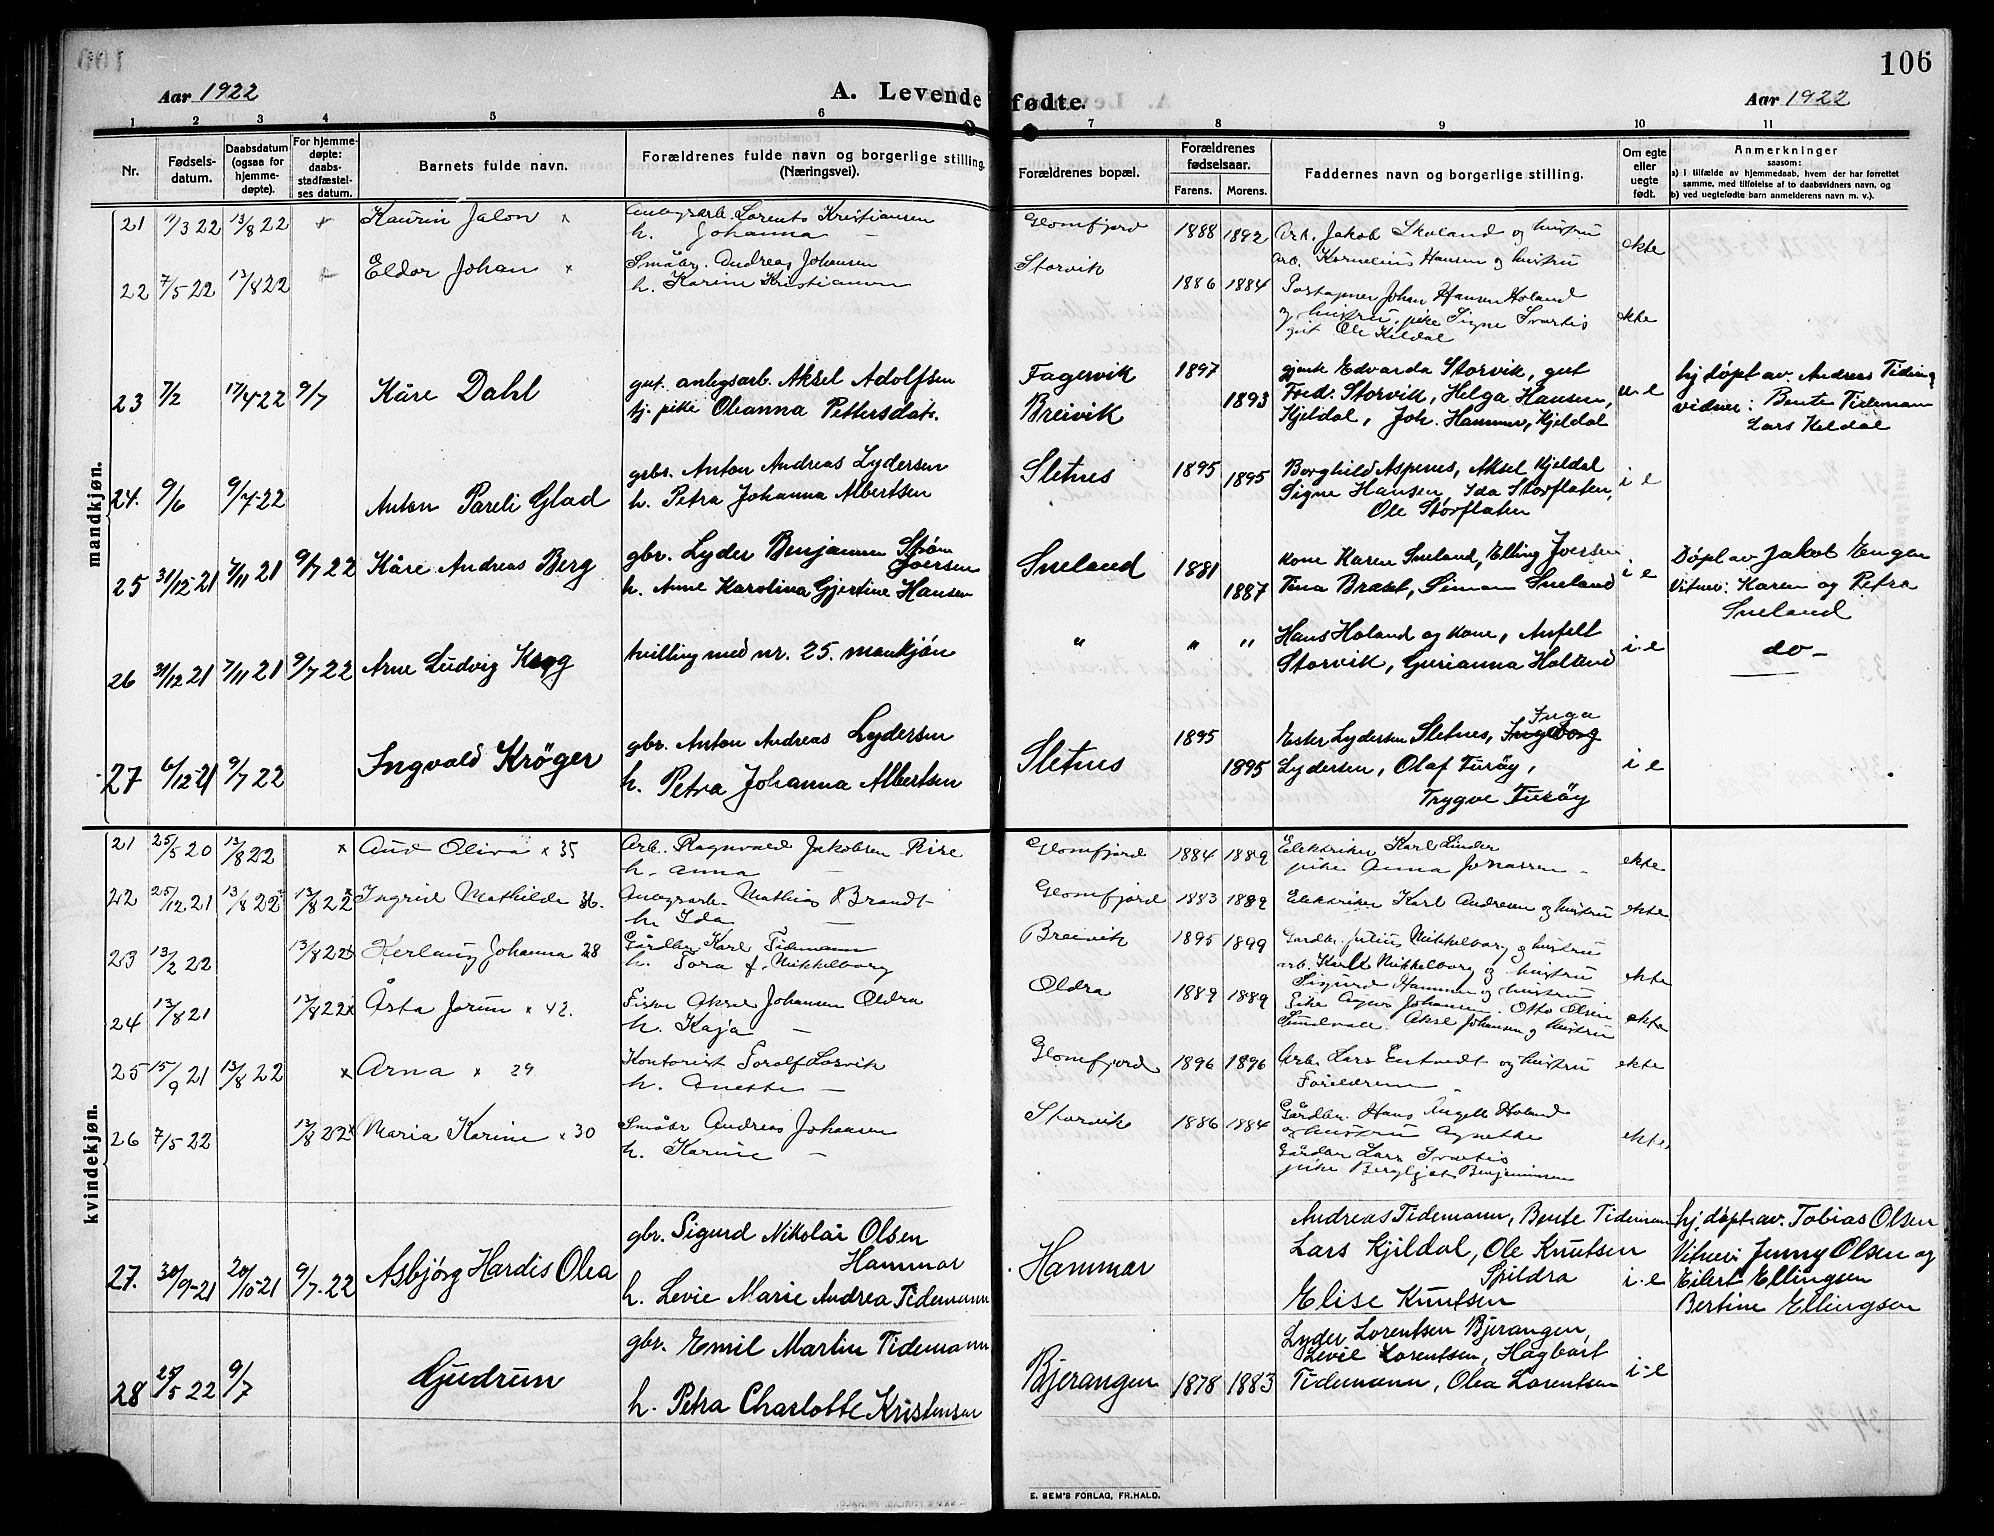 106
Aar 1922
A. Levende fødte.
Aar 1922
1 2 3 4 5 6 7 8 9 10 11
Nr.
Fødsels-
datum.
Daabsdatum
(ogsaa for
hjemme-
døpte).
For hjemme-
døpte:
daabs-
stadfæstel-
ses datum.
Barnets fulde navn.
Forældrenes fulde navn og borgerlige stilling.
(Næringsvei).
Forældrenes bopæl.
Forældrenes
fødselsaar.
Farens. Morens.
Faddernes navn og borgerlige stilling.
Om egte
eller
uegte
født.
Anmerkninger
saasom:
a) i tilfælde av hjemmedaab, hvem der har forrettet
samme, med tilføielse af to daabsvidners navn, og
b) ved uegtefødte barn anmelderens navn m. v.).
mandkjøn.
21 11/3 22 13/8 22 Kaurin Jalon x
Anlegsarb. Lorents Kristiansen
h. Johanna —
Glomfjord 1888 1892
Arb. Jakob Skoland og hustru
arb. Kornelius Hansen og hustru
ekte
22 7/5 22 13/8 22 Eldor Johan x
Småbr. Andreas Johansen
h. Karine Kristiansen
Storvik 1886 1884
Postapner Johan Hansen Holand
og hustru, pike Signe Svartis
gut Ole Kildal
ekte
23 7/2 17/4-22 9/7 Kåre Dahl
gut. anlegsarb. Aksel Adolfsen
tj. pike Oleanna Pettersdatr.
Fagervik 1897
Breivik 1893
gjente Edvarda Storvik, gut
Fred. Storvik, Helga Hansen,
Kjeldal, Joh. Hammer, Kjeldal
u-e
hj døpt av. Andreas Tidem
vidner: Bente Tidemann
Lars Keldal
24. 9/6 9/7-22 Anton Pareli Glad
grbr. Anton Andreas Lydersen
h. Petra Johanna Albertsen
Sletnes 1895 1895
Borghild Aspenes, Aksel Kjeldal
Signe Hansen, Ida Storflaten,
Ole Storflaten
i e
25 31/12-21 7/11 21 9/7 22 Kåre Andreas Berg
gbr. Lyder Benjamin Strøm
Joersen
h. Anne Karolina Gjertine Hansen
Sneland 1881 1887
kone Karen Sneland, Elling Joersen
Tina Braset, Simon Sneland
i e
Døpt av Jakob Engen
Vitner: Karen og Petra
Sneland
26 31/12 21 7/11 21 9/7 22 Arne Ludvig Krog
tvilling med nr. 25. mankjøn
" " "
Hans Holand og kone, Anfelt
Storvik, Gurianna Holand
i-e
do —
27 6/12-21 9/7 22 Ingvald Kröger
gbr. Anton Andreas Lydersen
h. Petra Johanna Albertsen
Sletnes 1895 1895
Inga
Ester Lydersen Sletnes, Ingeborg
Lydersen, Olaf Turöy,
Trygve Turöy
i e
kvindekjøn.
21 25/5 20 13/8 22 x Aud Oliva x 35
Arb. Ragnvald Jakobsen Rise
h. Anna —
Glomfjord 1884 1889
Elektriker Karl Linder
pike Anna Jonassen —
ekte
22 25/12 21 13/8 22 13/8 22 x Ingrid Mathilde 36.
Anlegsarb. Mathias Brandt
h. Ida —
Glomfjord 1883 1889
Elektriker Karl Andresen og hustru
ekte
23 13/2 22 13/8 22 x Herlaug Johanna 28
Gårdbr. Karl Tidemann
h. Tora f. Mikkelborg
Breivik 1895 1899
Gardbr. Julius Mikkelborg og hustru
arb. Karl Mikkelborg og hustru
Sigurd Hammer og hustru
ekte
24 13/8 21 13/8 22 x Åsta Jorun x 42.
Fisker Aksel Johansen Oldra
h. Kaja —
Oldra 1889 1889
Pike Agnes Johansen. Otto Olsen
Sundvall. Aksel Johansen og hustru
ekte
25 15/9 21 13/8 22 x Arna x 29
Kontorist Torolf Losvik
h. Anette —
Glomfjord 1896 1896
Arb. Lars Entvedt og hustru
Foreldrene
ekte
26 7/5 22 13/8 22 x Maria Karine x 30
Småbr Andreas Johansen
h. Karine —
Storvik 1886 1884
Gårdbr. Hans Angell Holand
og hustru Agnethe
Gårdbr Lars Svartis
pike Bergljot Benjaminsen
ekte
27. 30/9-21 20/10-21 9/7-22 Asbjørg Hardis Olea
gbr. Sigurd Nikolai Olsen
Hammar
h. Levie Marie Andrea Tidemann
Hammar
Andreas Tidemann, Bente Tidemann
Lars Kjildal, Ole Knutsen
Spildra
Elise Knutsen
i-e
hj. døpt av. Tobias Olsen
Vitner: Jenny Olsen og
Eilert Ellingsen
Bertine Ellingsen
28 25/5 22 9/7 Gudrun
gbr. Emil Martin Tidemann
h. Petra Charlotte Kristensen
Bjerangen 1878 1883
Lyder Lorentsen Bjerangen,
Levie Lorentsen, Hagbart
Tidemann, Olea Lorentsen
i-e
E. SEM'S FORLAG, FR.HALD.